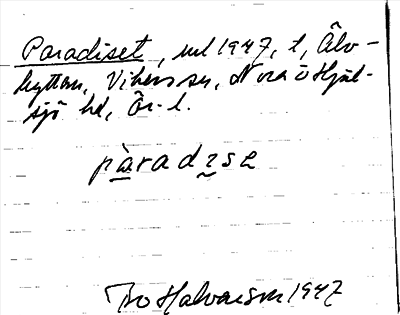 Paradiset, uel 1947, t, Älv-
hyttan, Vikers sn, Nora o Hjul-
sjö hd, Ör. l.
pàradɪse
Bo Halvarson 1947